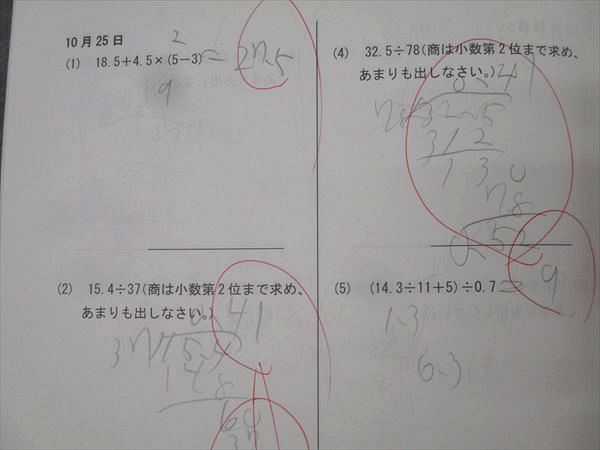 10月25日
2
(1) 18.5+4.5×(5−3) = 27.5
9
(2) 15.4÷37(商は小数第2位まで求め、
あまりも出しなさい。)
0.41
37)15.4
148
60
37
(4) 32.5÷78(商は小数第2位まで求め、
あまりも出しなさい。)
0.41
78)32.5
312
130
78
0.52
(5) (14.3÷11+5)÷0.7 = 9
1.3
6.3